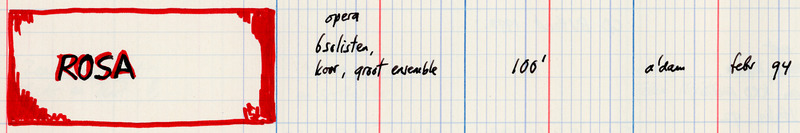 opera
6 solisten,
ROSA koor, groot ensemble 100' a'dam febr 94